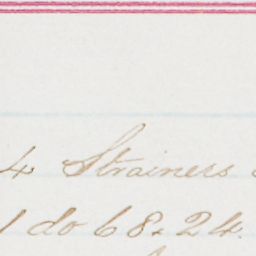 4 Strainers
1 do 68.24.